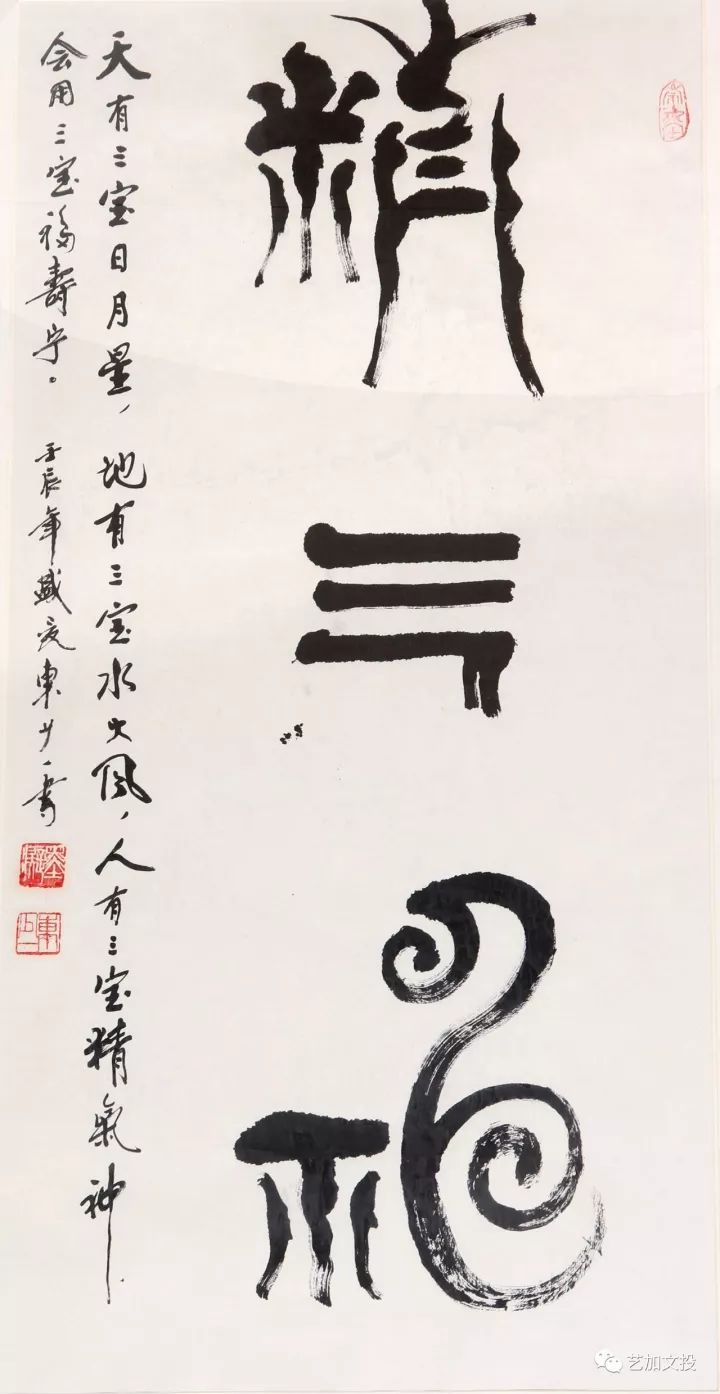 精
气
神
天有三宝日月星，地有三宝水火风，人有三宝精氣神
会用三宝福壽宁。 壬辰年盛夏東少一書
艺加文投